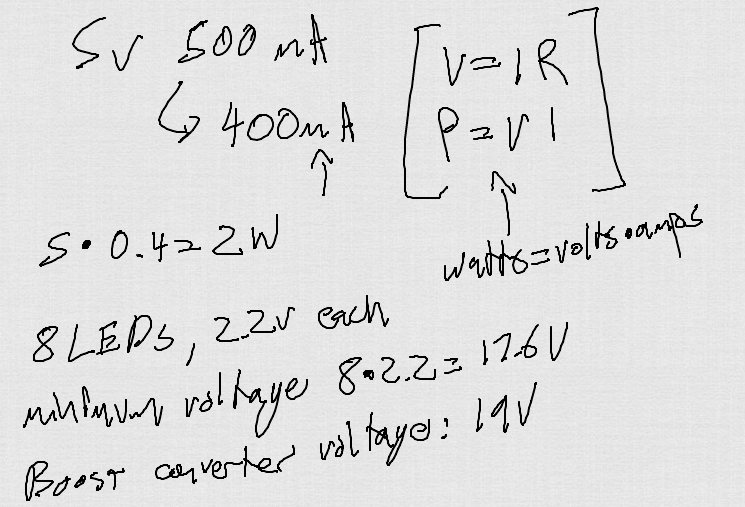 5V 500mA
↳ 400mA
[V=IR
P=VI]
watts=volts•amps
5•0.4=2W
8 LEDs, 2.2V each
minimum voltage 8•2.2=17.6V
Boost converter voltage: 19V